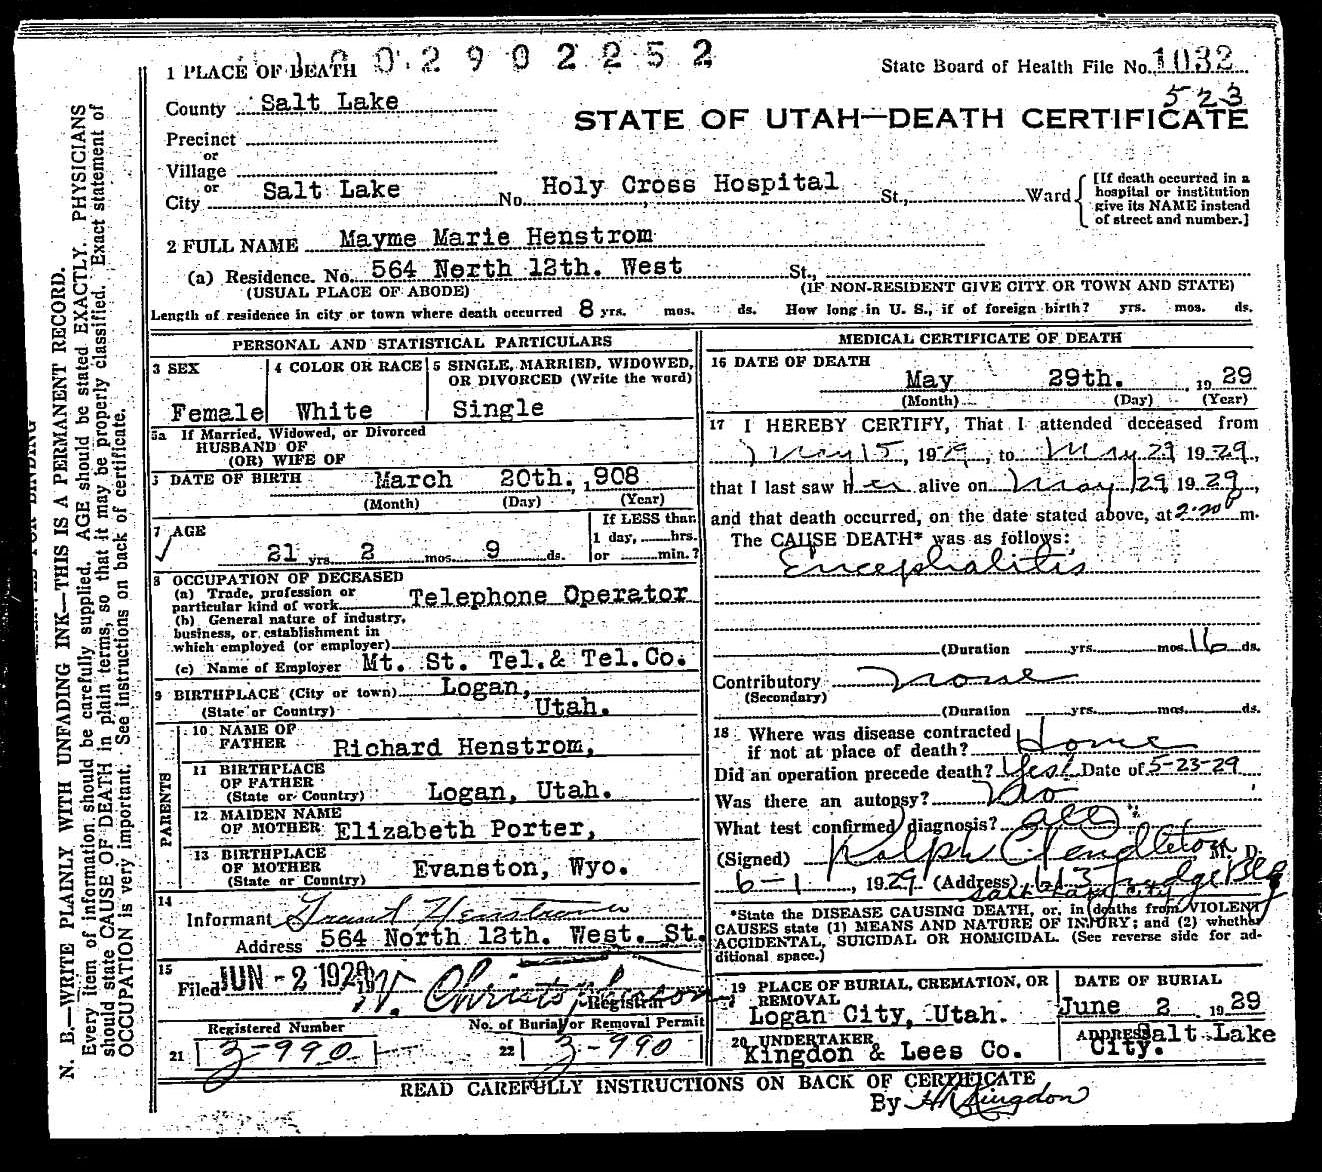 1 PLACE OF DEATH
0 2 9 0 2 2 5 2
State Board of Health File No. 1032
523
County Salt Lake
STATE OF UTAH—DEATH CERTIFICATE
Precinct
or
Village
or
City Salt Lake No. Holy Cross Hospital St., Ward
[If death occurred in a
hospital or institution
give its NAME instead
of street and number.]
2 FULL NAME Mayme Marie Henstrom
(a) Residence. No. 564 North 12th. West St.,
(USUAL PLACE OF ABODE) (IF NON-RESIDENT GIVE CITY OR TOWN AND STATE)
Length of residence in city or town where death occurred 8 yrs. mos. ds. How long in U. S., if of foreign birth? yrs. mos. ds.
PERSONAL AND STATISTICAL PARTICULARS
3 SEX
Female
4 COLOR OR RACE
White
5 SINGLE, MARRIED, WIDOWED,
OR DIVORCED (Write the word)
Single
5a If Married, Widowed, or Divorced
HUSBAND OF
(OR) WIFE OF
DATE OF BIRTH March 20th. , 908
(Month) (Day) (Year)
7 AGE
21 yrs. 2 mos. 9 ds.
If LESS than
1 day, hrs.
or min.?
8 OCCUPATION OF DECEASED
(a) Trade, profession or
particular kind of work Telephone Operator
(b) General nature of industry,
business, or establishment in
which employed (or employer)
(c) Name of Employer Mt. St. Tel.& Tel.Co.
9 BIRTHPLACE (City or town) Logan,
(State or Country) Utah.
PARENTS
10 NAME OF
FATHER Richard Henstrom,
11 BIRTHPLACE
OF FATHER
(State or Country) Logan, Utah.
12 MAIDEN NAME
OF MOTHER Elizabeth Porter,
13 BIRTHPLACE
OF MOTHER
(State or Country) Evanston, Wyo.
14
Informant Henstrom
Address 564 North 12th. West. St.
15
Filed JUN - 2 1929 W. Christopherson
Registrar
Registered Number
21 3-990
No. of Burial or Removal Permit
22 3-990
MEDICAL CERTIFICATE OF DEATH
16 DATE OF DEATH
May 29th. , 19 29
(Month) (Day) (Year)
17 I HEREBY CERTIFY, That I attended deceased from
May 15, 1929, to May 29 1929,
that I last saw her alive on May 29 1929,
and that death occurred, on the date stated above, at 2:20 p m.
The CAUSE DEATH* was as follows:
Encephalitis
(Duration yrs. mos. 16 ds.
Contributory None
(Secondary)
(Duration yrs. mos. ds.
18 Where was disease contracted
if not at place of death? Home
Did an operation precede death? Yes Date of 5-23-29
Was there an autopsy? No
What test confirmed diagnosis? all
(Signed) Ralph C Pendleton M. D.
6-1, 1929 (Address) 613 Judge Bldg
Salt Lake City
*State the DISEASE CAUSING DEATH, or, in deaths from VIOLENT
CAUSES state (1) MEANS AND NATURE OF INJURY; and (2) whether
ACCIDENTAL, SUICIDAL OR HOMICIDAL. (See reverse side for ad-
ditional space.)
19 PLACE OF BURIAL, CREMATION, OR
REMOVAL
Logan City, Utah.
DATE OF BURIAL
June 2 19 29
20 UNDERTAKER
Kingdon & Lees Co.
ADDRESS Salt Lake
City.
READ CAREFULLY INSTRUCTIONS ON BACK OF CERTIFICATE
By H Kingdon
N. B.—WRITE PLAINLY WITH UNFADING INK—THIS IS A PERMANENT RECORD.
Every item of information should be carefully supplied. AGE should be stated EXACTLY. PHYSICIANS
should state CAUSE OF DEATH in plain terms, so that it may be properly classified. Exact statement of
OCCUPATION is very important. See instructions on back of certificate.